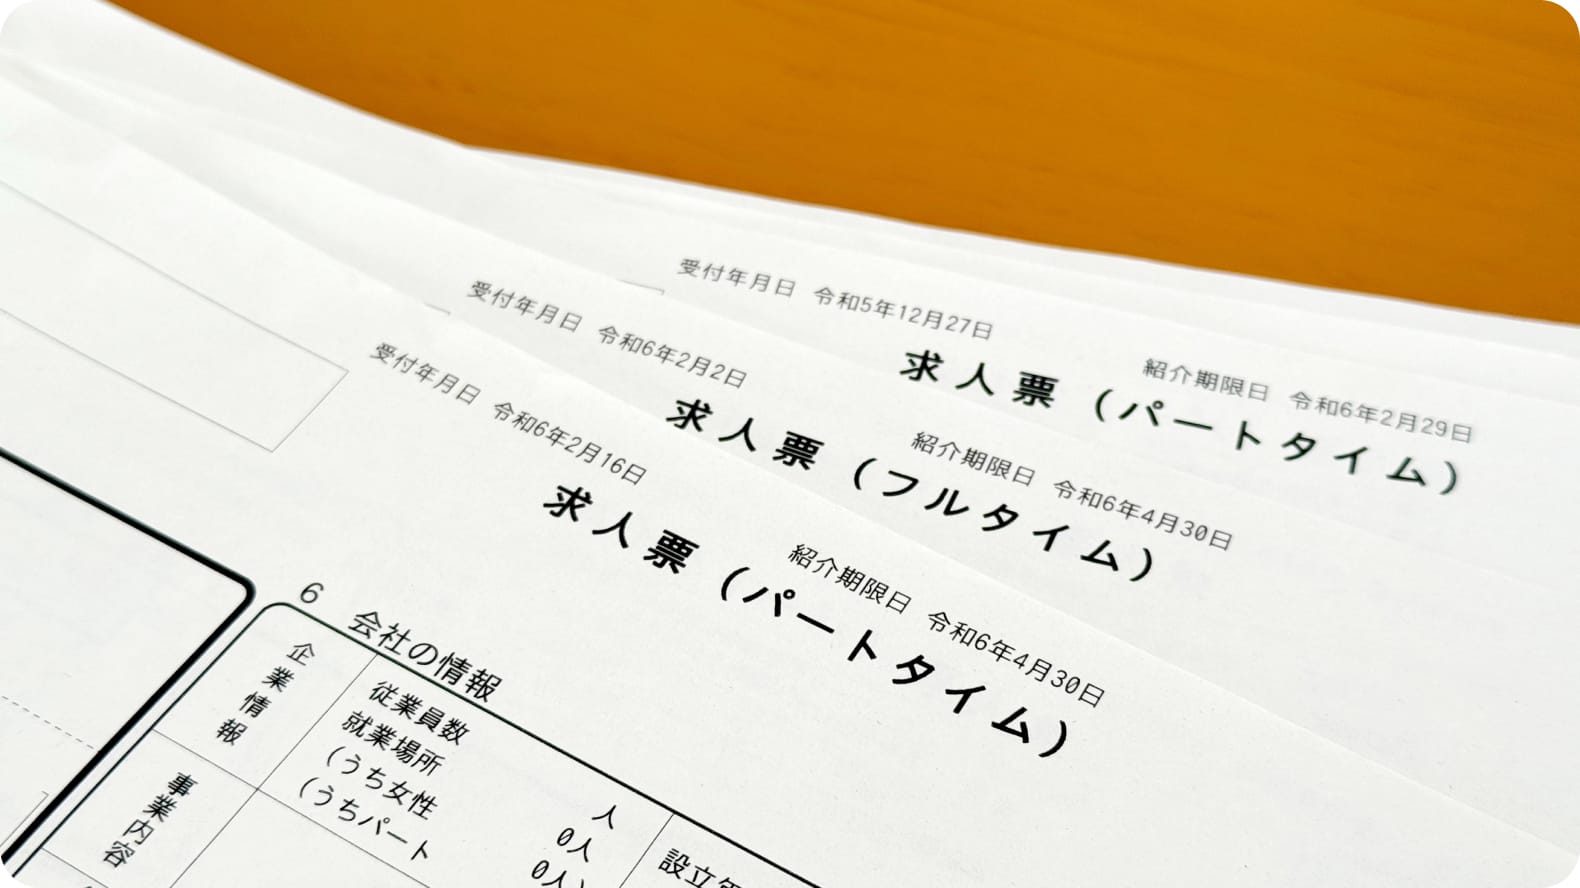 受付年月日 令和5年12月27日
紹介期限日 令和6年2月29日
求人票（パートタイム）
受付年月日 令和6年2月2日
紹介期限日 令和6年4月30日
求人票（フルタイム）
受付年月日 令和6年2月16日
紹介期限日 令和6年4月30日
求人票（パートタイム）
6 会社の情報
企業情報
従業員数
就業場所
（うち女性
（うちパート
人
0人
0人）
設立
事業内容